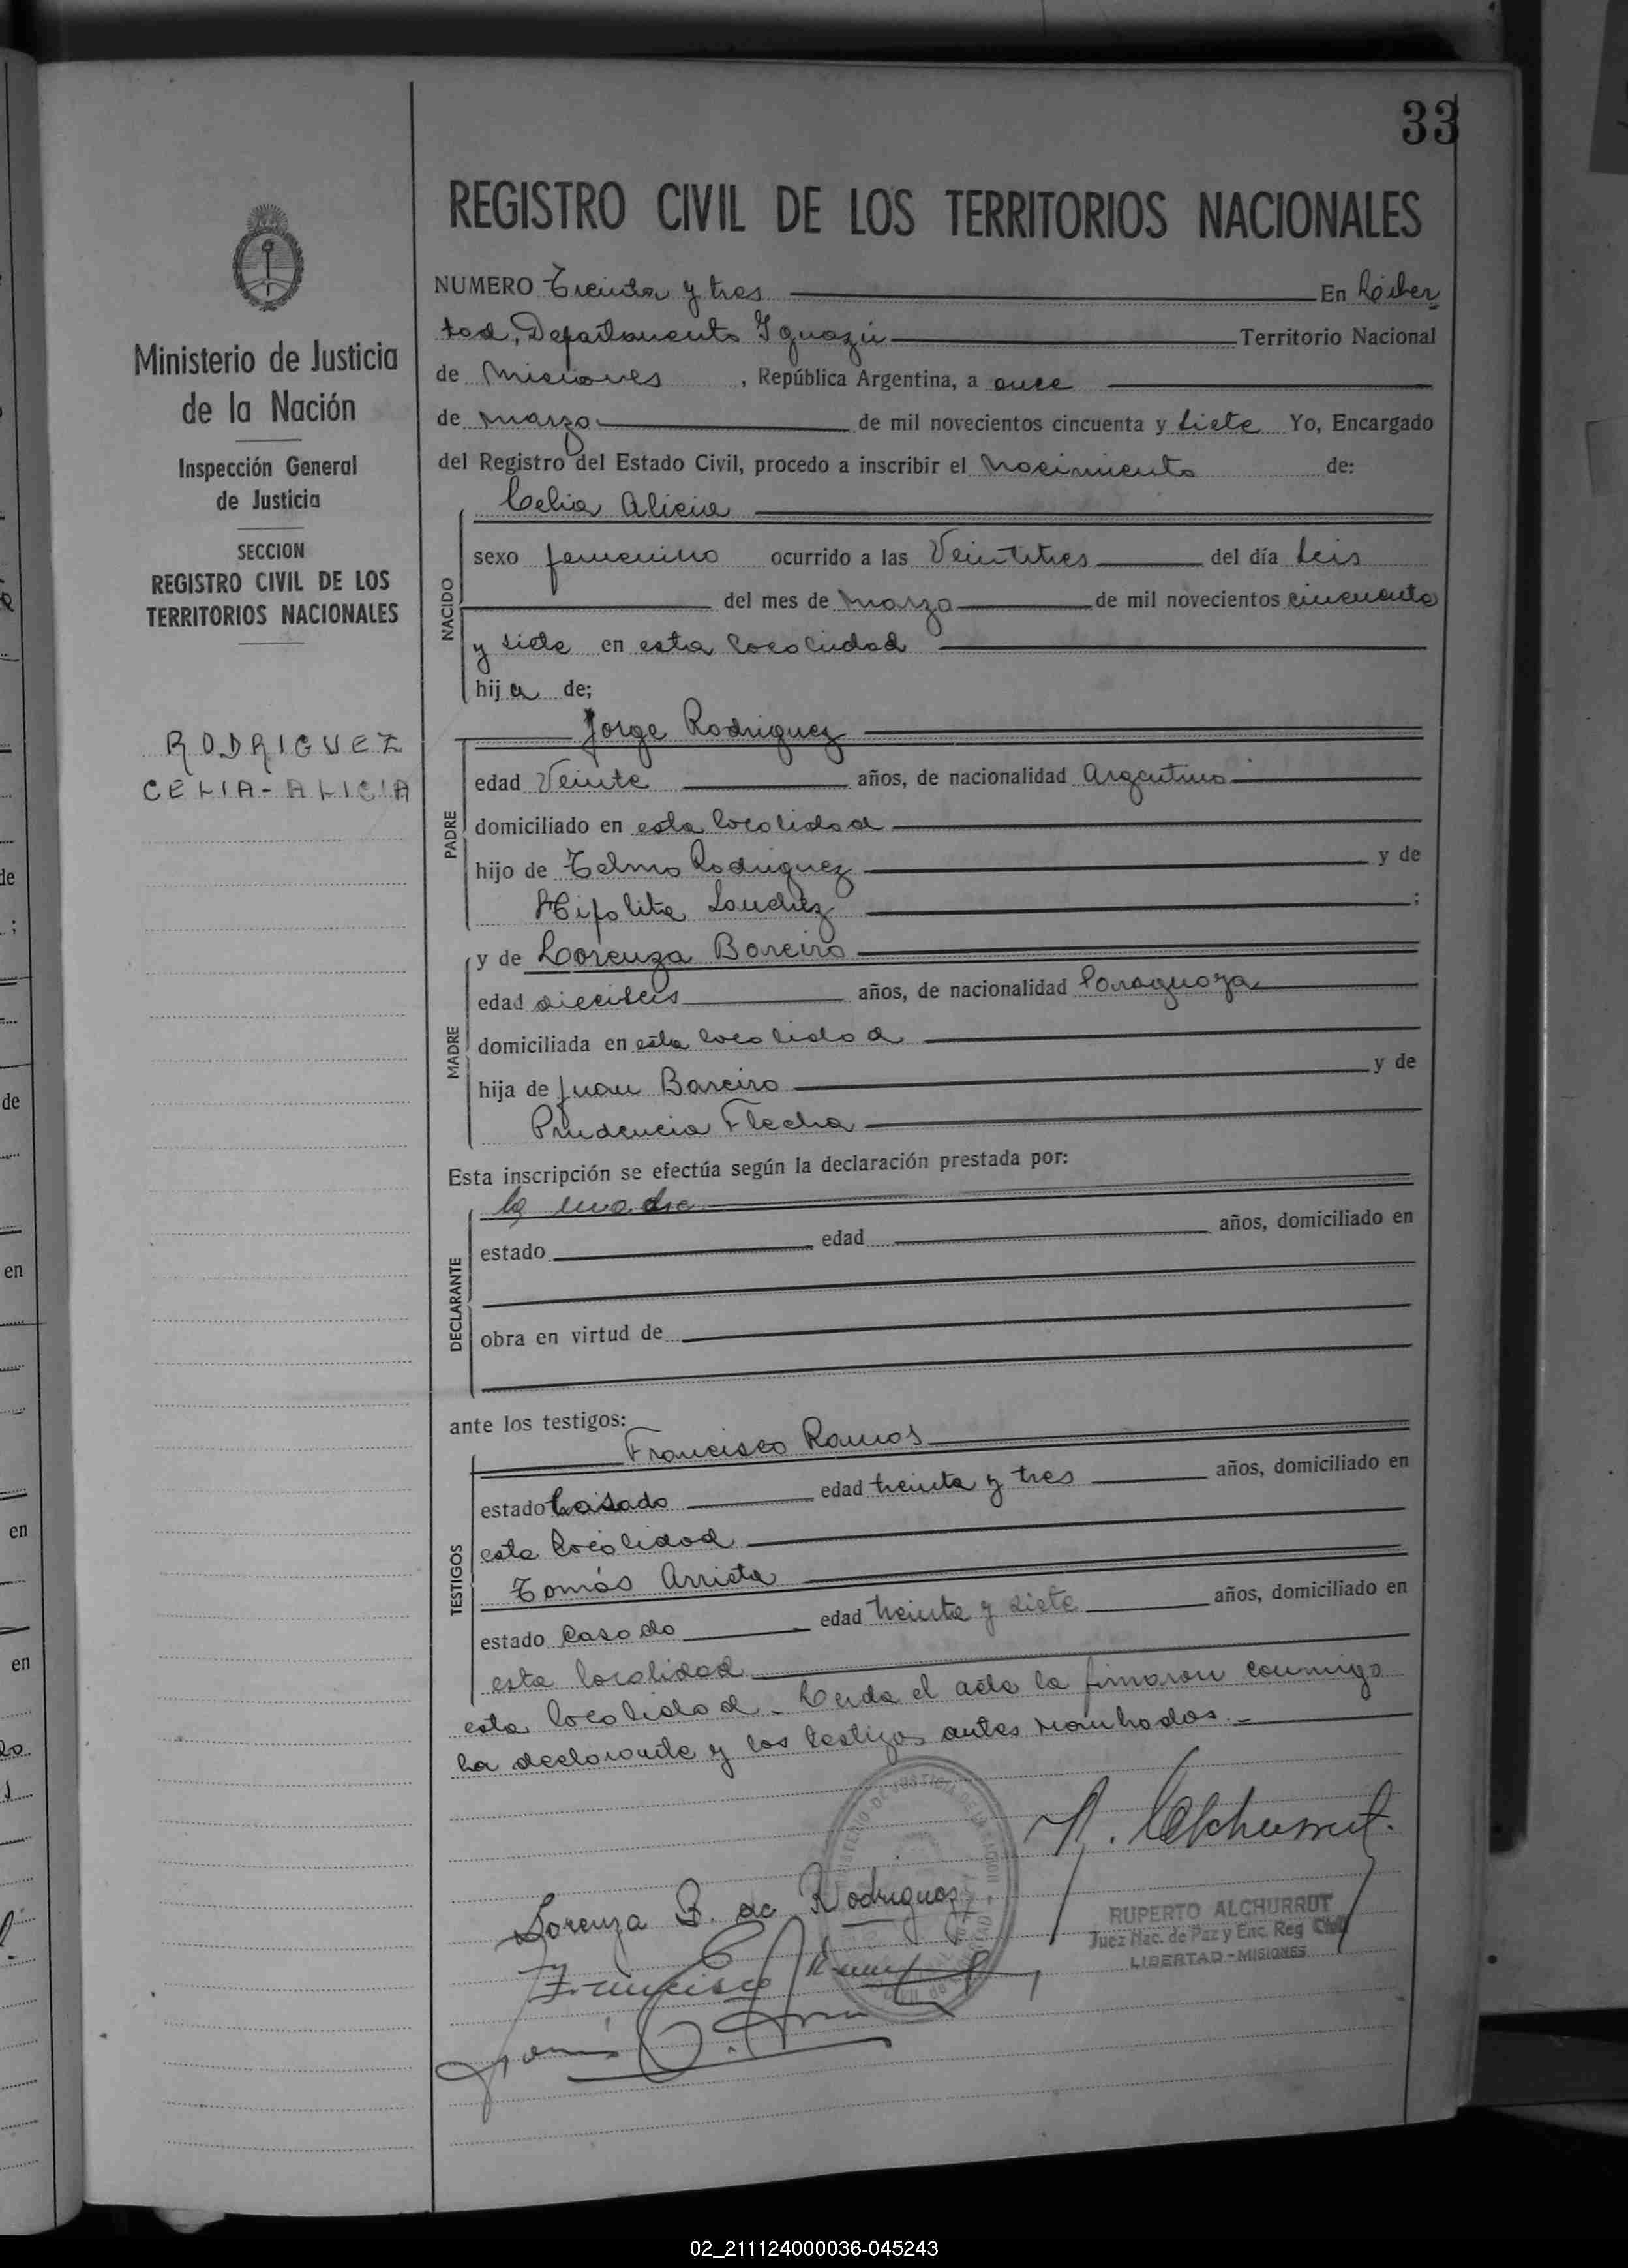 33
REGISTRO CIVIL DE LOS TERRITORIOS NACIONALES
Ministerio de Justicia
de la Nación
Inspección General
de Justicia
SECCION
REGISTRO CIVIL DE LOS
TERRITORIOS NACIONALES
RODRIGUEZ
CELIA-ALICIA
NUMERO Treinta y tres En Liber
tad, Departamento Iguazú Territorio Nacional
de Misiones, República Argentina, a once
de marzo de mil novecientos cincuenta y siete Yo, Encargado
del Registro del Estado Civil, procedo a inscribir el Nacimiento de:
NACIDO
Celia Alicia
sexo femenino ocurrido a las Veintitres del día seis
del mes de marzo de mil novecientos cincuenta
y siete en esta localidad
hija de;
PADRE
Jorge Rodriguez
edad Veinte años, de nacionalidad Argentino
domiciliado en esta localidad
hijo de Telmo Rodriguez y de
Hipolita Sanchez ;
MADRE
y de Lorenza Bareiro
edad dieciseis años, de nacionalidad Paraguaya
domiciliada en esta localidad
hija de Juan Bareiro y de
Prudencia Flecha
Esta inscripción se efectúa según la declaración prestada por:
DECLARANTE
la madre
estado edad años, domiciliado en
obra en virtud de
ante los testigos:
TESTIGOS
Francisco Ramos
estado Casado edad treinta y tres años, domiciliado en
esta localidad
Tomás Arrieta
estado Casado edad treinta y siete años, domiciliado en
esta localidad
esta localidad. Leida el acta la firmaron conmigo
la declarante y los testigos antes nombrados.-
R. Alchurrut.
Lorenza B. de Rodriguez
Francisco Ramos
RUPERTO ALCHURRUT
Juez Nac. de Paz y Enc. Reg. Civil
LIBERTAD - MISIONES
02_211124000036-045243